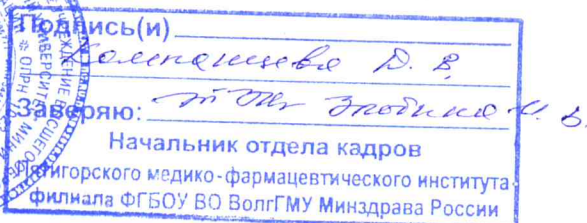 Подпись(и)
Компанцева Д. В.
Заверяю:
Начальник отдела кадров
Пятигорского медико-фармацевтического института-
филиала ФГБОУ ВО ВолгГМУ Минздрава России